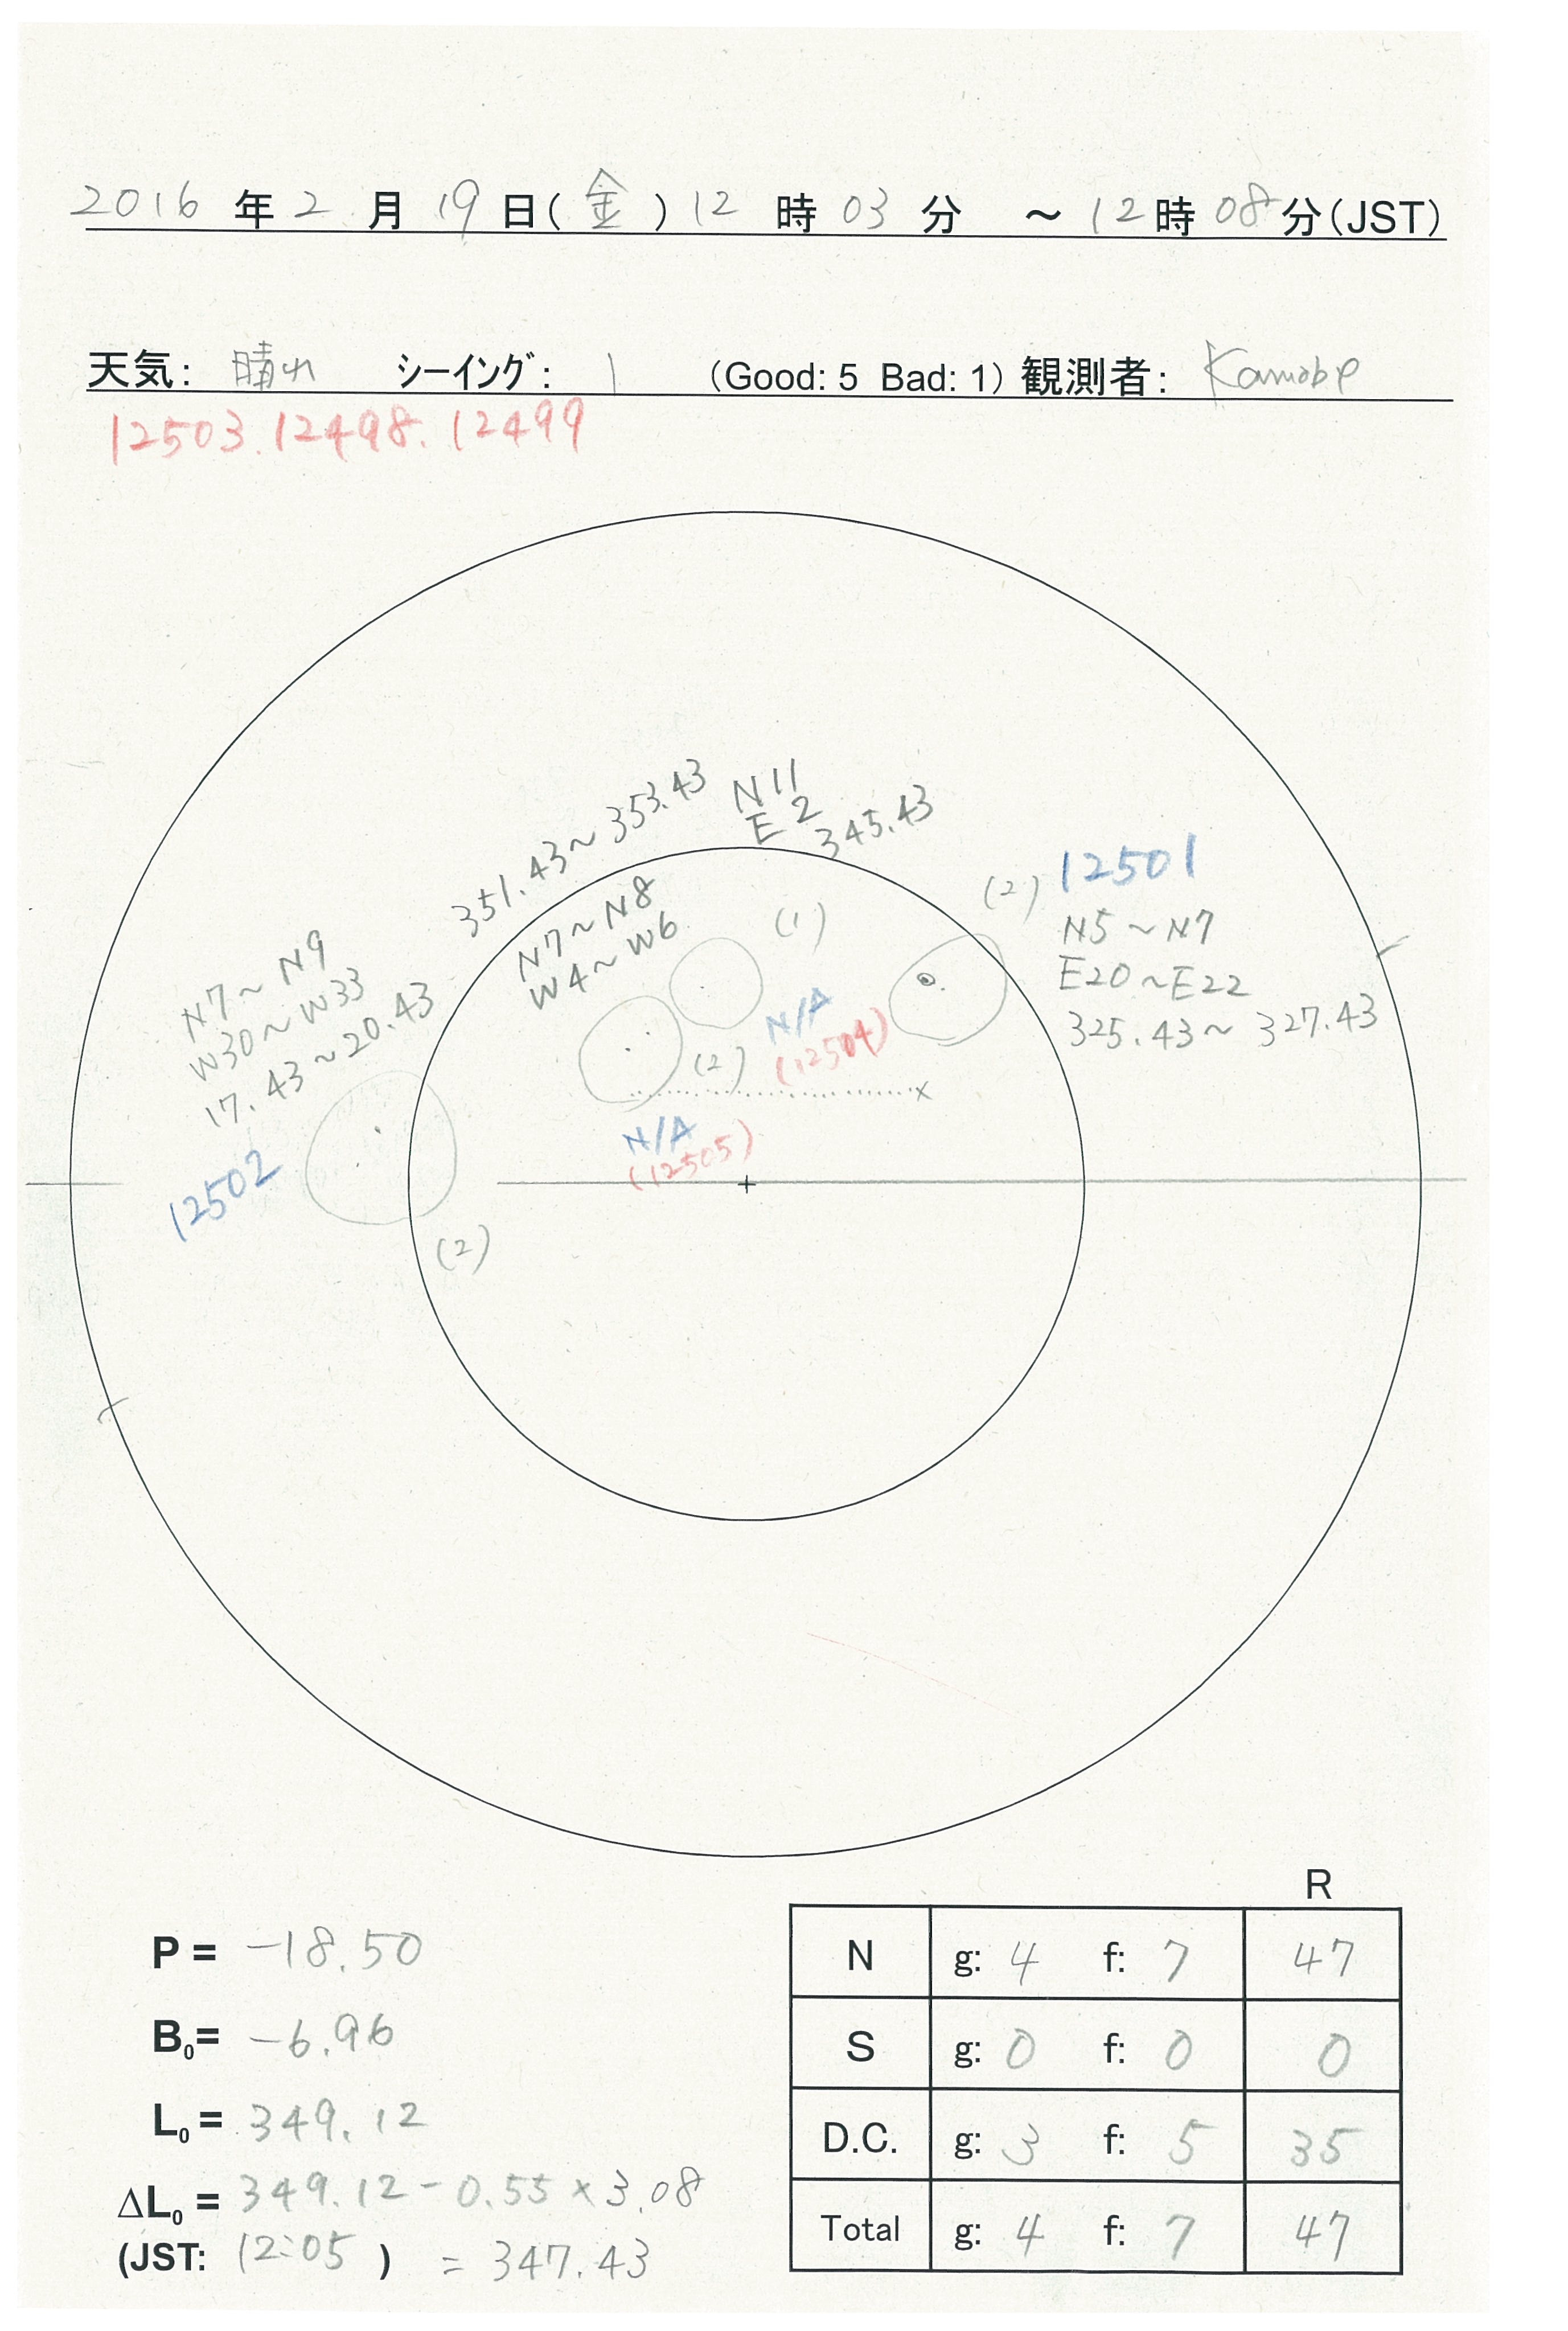 2016 年 2 月 19 日(金) 12 時 03 分 ～12時 08分(JST)
天気: 晴れ シーイング: 1 (Good: 5 Bad: 1) 観測者:
12503.12498.12499
351.43～353.43
N7～N8
W4～W6
N11
E 2
345.43
(1)
N/A
(12504)
(2) 12501
N5～N7
E20～E22
325.43～327.43
N7～N9
W30～W33
17.43～20.43
12502
(2)
(2)
x
N/A
(12505)
P = -18.50
B0= -6.96
L0= 349.12
ΔL0= 349.12-0.55×3.08
(JST: 12:05 ) = 347.43
R
N g: 4 f: 7 47
S g: 0 f: 0 0
D.C. g: 3 f: 5 35
Total g: 4 f: 7 47